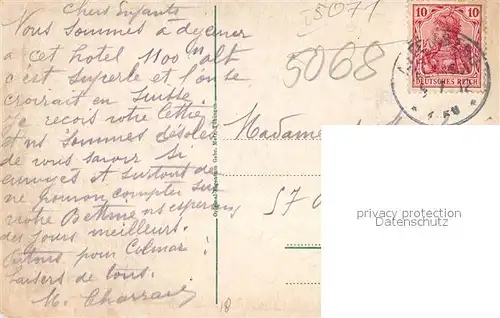 Chers Enfants
Nous sommes à dejeuner
à cet hotel 1100 m alt
c'est superbe et l'on se
croirait en Suisse.
Je recois votre lettre
et ns sommes désolés
de vous savoir si
et surtout de
ne pouvoir compter sur
votre ns esperons
des jours meilleurs.
Partons pour Colmar
baisers de tous.
M.
15071
5068
10 10
DEUTSCHES REICH
Madame
57
18
privacy protection
Datenschutz